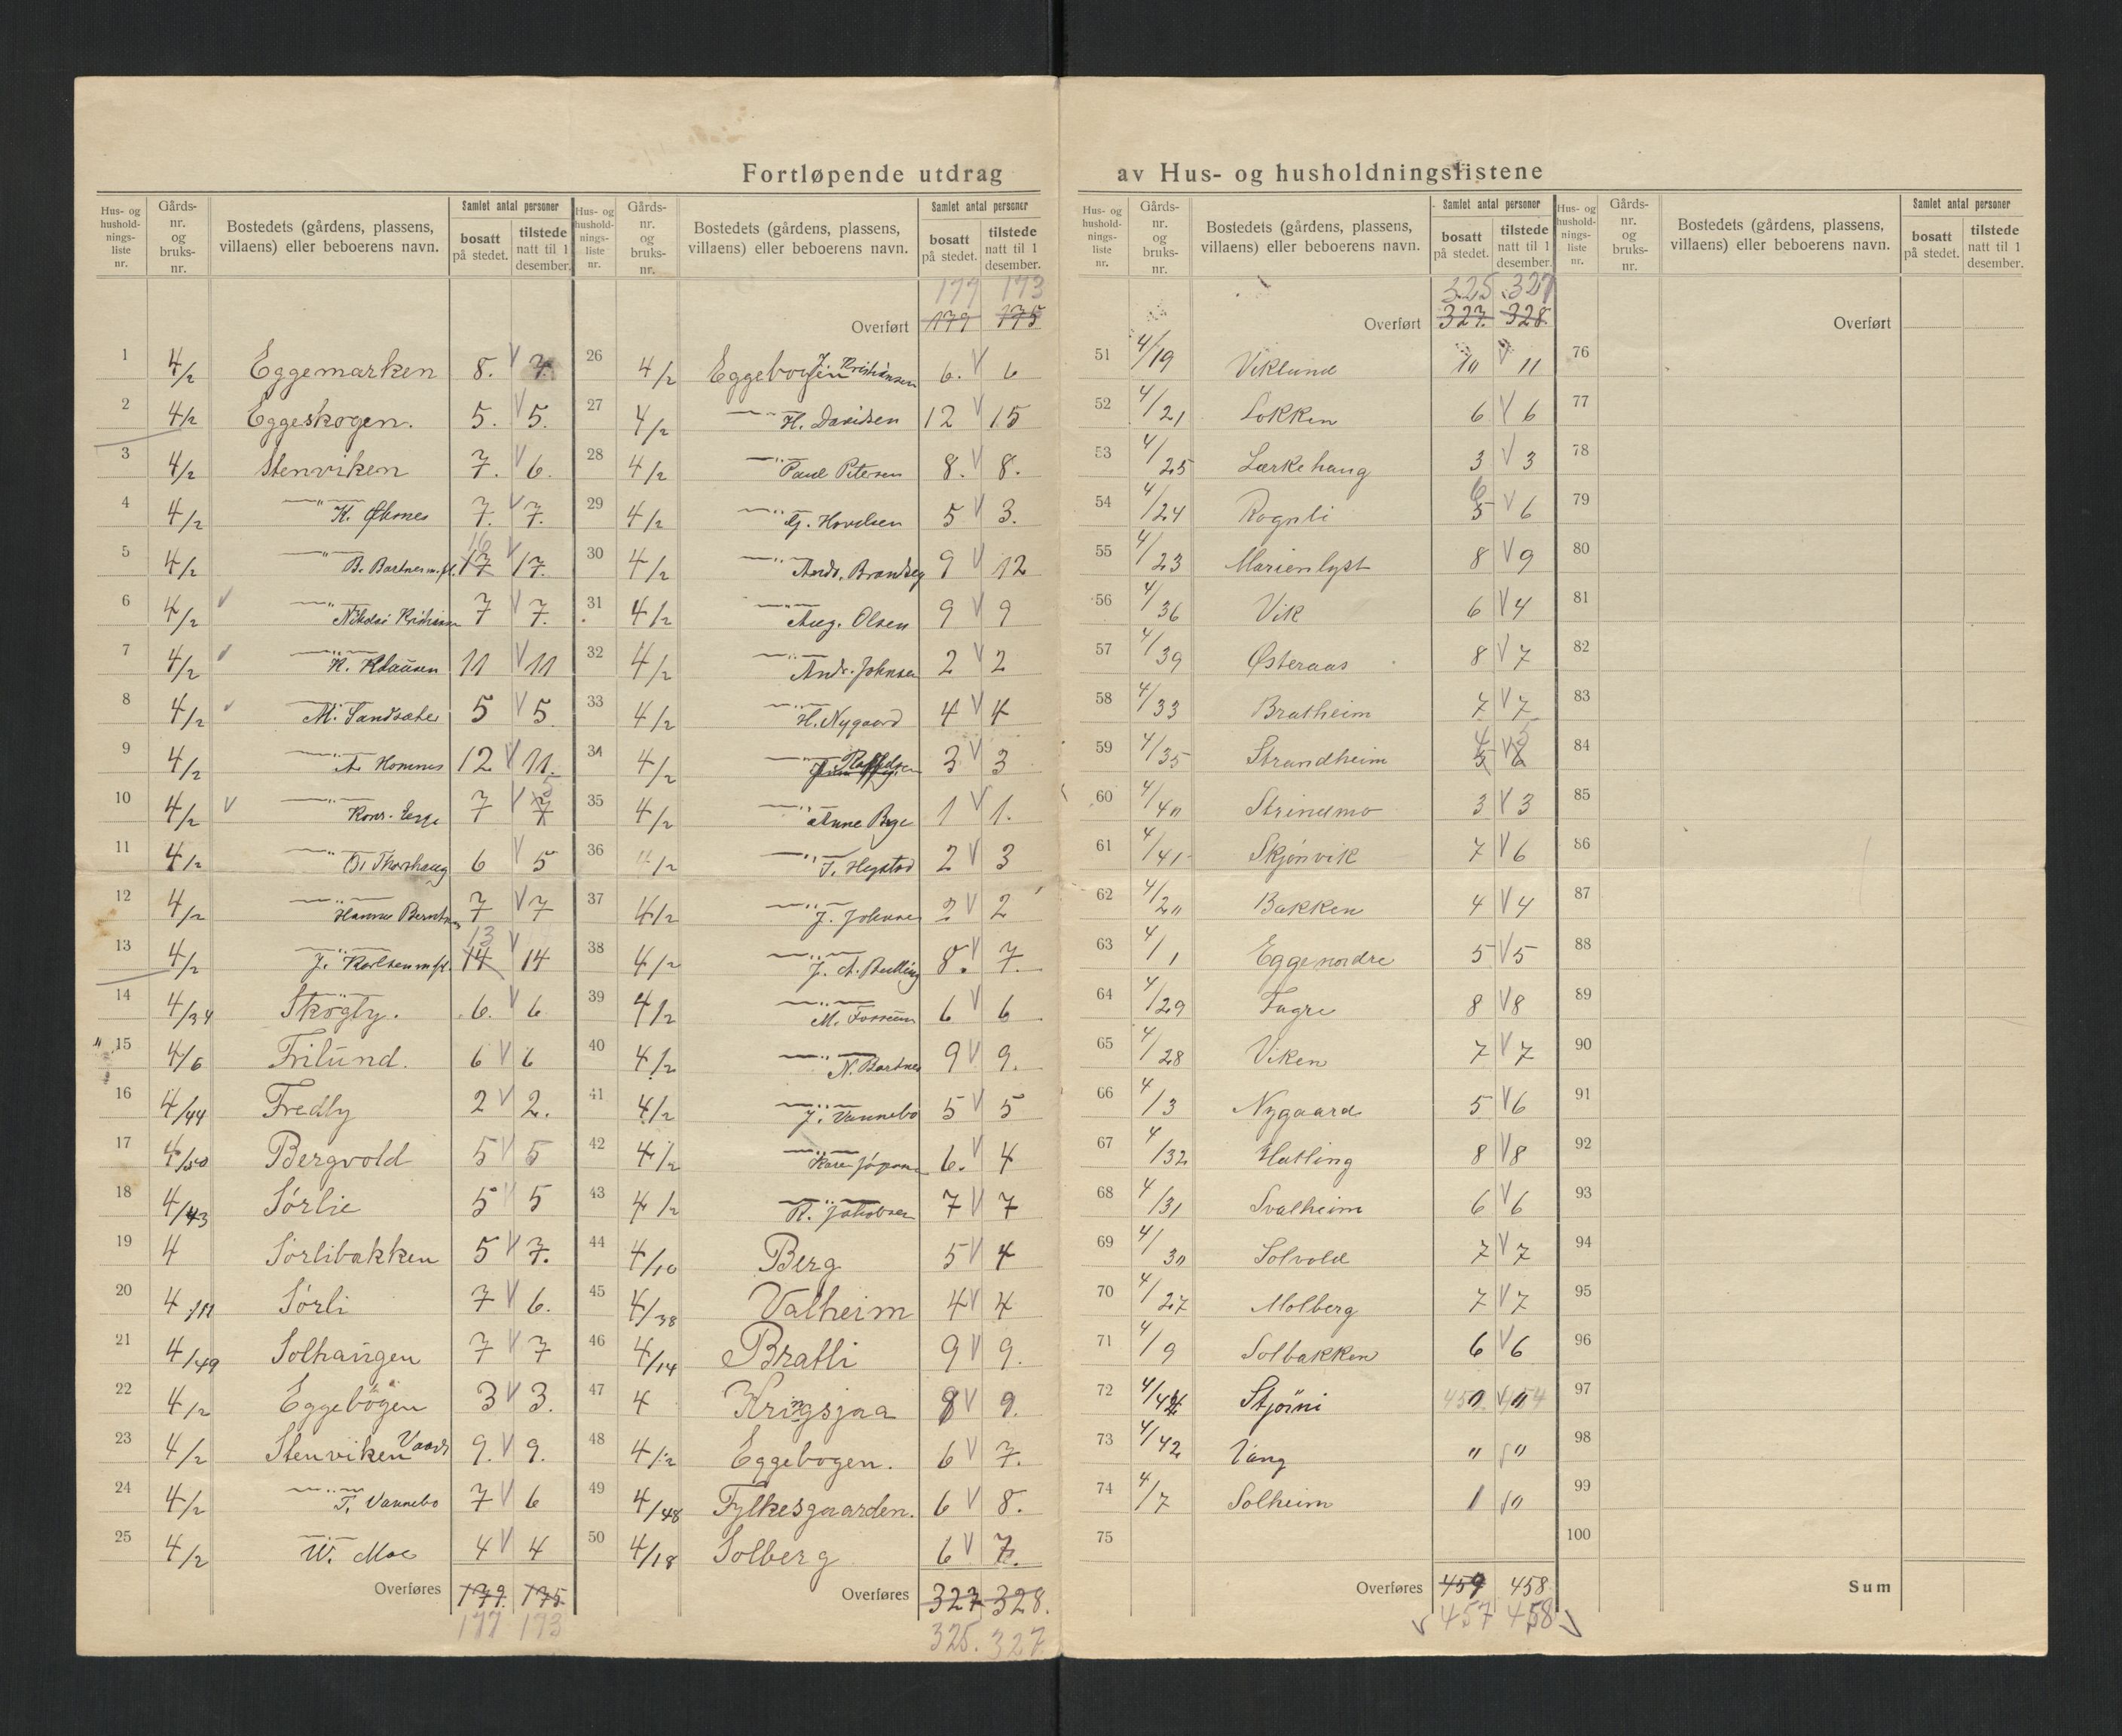 Fortløpende utdrag av Hus- og husholdningslistene
Hus- og hushold-nings-liste nr. | Gårds-nr. og bruks-nr. | Bostedets (gårdens, plassens, villaens) eller beboerens navn. | Samlet antal personer | bosatt på stedet. | tilstede natt til 1 desember.
1 4/2 Eggemarken 8. V 7.
2 4/2 Eggeskogen. 5. V 5.
3 4/2 Stenviken 7. V 6.
4 4/2 —"— K. 7. V 7.
5 4/2 —"— B. Bartnes m. fl. 17 16 V 17.
6 4/2 —"— Nikolai 7 V 7.
7 4/2 —"— K. Klausen 11 V 11
8 4/2 —"— M. Sandsæter 5 V 5.
9 4/2 —"— A. Homnes 12 V 11.
10 4/2 V —"— Konr. Egge 7 V 7
11 4/2 —"— O. Thorshaug 6 V 5
12 4/2 —"— Hanna 7 V 7
13 4/2 —"— J. Karlsen m. fl. 14 13 V 14
14 4/34 Skogly. 6. V 6
15 4/6 Frilund. 6 V 6
16 4/44 Fredly 2 V 2.
17 4/50 Bergvold 5 V 5
18 4/43 Sørlie 5 V 5
19 4 Sørlibakken 5 V 7.
20 4/11 Sørli 7 V 6.
21 4/49 Solhaugen 7 V 7
22 4/2 Eggebogen 3 V 3.
23 4/2 Stenviken 9. V 9.
24 4/2 —"— T. Vannebo 7 V 6
25 4/2 —"— W. Moe 4 V 4
Overføres 179. 175.
177 173
Hus- og hushold-nings-liste nr. | Gårds-nr. og bruks-nr. | Bostedets (gårdens, plassens, villaens) eller beboerens navn. | Samlet antal personer | bosatt på stedet. | tilstede natt til 1 desember.
177 173
Overført 179 175
26 4/2 Eggebogen J. Kristiansen 6. V 6
27 4/2 —"— H. Davidsen 12 V 15
28 4/2 —"— Paul Petersen 8. V 8.
29 4/2 —"— G. Hovelsen 5 V 3.
30 4/2 —"— Andr. Brandseg 9 V 12
31 4/2 —"— Aug. Olsen 9 V 9
32 4/2 —"— Andr. Johnsen 2 V 2
33 4/2 —"— H. Nygaard 4 V 4
34 4/2 —"— 3 V 3
35 4/2 —"— Anne 1 V 1.
36 4/2 —"— T. Hegstad 2 V 3
37 4/2 —"— J. Johnsen 2 V 2
38 4/2 —"— J. A. 8. V 7.
39 4/2 —"— M. Fossum 6 V 6
40 4/2 —"— N. Bartnes 9 V 9.
41 4/2 —"— J. Vannebo 5 V 5
42 4/2 —"— 6. V 4
43 4/2 —"— R. Jakobsen 7 V 7
44 4/10 Berg 5 V 4
45 4/38 Valheim 4 V 4
46 4/14 Bratli 9 V 9.
47 4 Kringsjaa 8 V 9.
48 4/2 Eggebogen. 6 V 7.
49 4/48 Fylkesgaarden. 6 V 8.
50 4/18 Solberg 6 V 7.
Overføres 327 328.
325. 327.
Hus- og hushold-nings-liste nr. | Gårds-nr. og bruks-nr. | Bostedets (gårdens, plassens, villaens) eller beboerens navn. | Samlet antal personer | bosatt på stedet. | tilstede natt til 1 desember.
325 327
Overført 327. 328.
51 4/19 Viklund 10 V 11
52 4/21 Løkken 6 V 6
53 4/25 Lærkehaug 3 V 3
54 4/24 Rognli 5 6 V 6
55 4/23 Marienlyst 8 V 9
56 4/36 Vik 6 V 4
57 4/39 Østeraas 8 V 7
58 4/33 Bratheim 7 V 7
59 4/35 Strandheim 5 4 V 5
60 4/40 Strindmo 3 V 3
61 4/41 Skjønvik 7 V 6
62 4/20 Bakken 4 V 4
63 4/1 Egge nordre 5 V 5
64 4/29 Fagre 8 V 8
65 4/28 Viken 7 V 7
66 4/3 Nygaard 5 V 6
67 4/32 Hatling 8 V 8
68 4/31 Svalheim 6 V 6
69 4/30 Solvold 7 V 7
70 4/27 Molberg 7 V 7
71 4/9 Solbakken 6 V 6
72 4/44
73 4/42 Vang " V "
74 4/7 Solheim
75
Overføres 459 458
V 457 458 V
Hus- og hushold-nings-liste nr. | Gårds-nr. og bruks-nr. | Bostedets (gårdens, plassens, villaens) eller beboerens navn. | Samlet antal personer | bosatt på stedet. | tilstede natt til 1 desember.
Overført
76
77
78
79
80
81
82
83
84
85
86
87
88
89
90
91
92
93
94
95
96
97
98
99
100
Sum